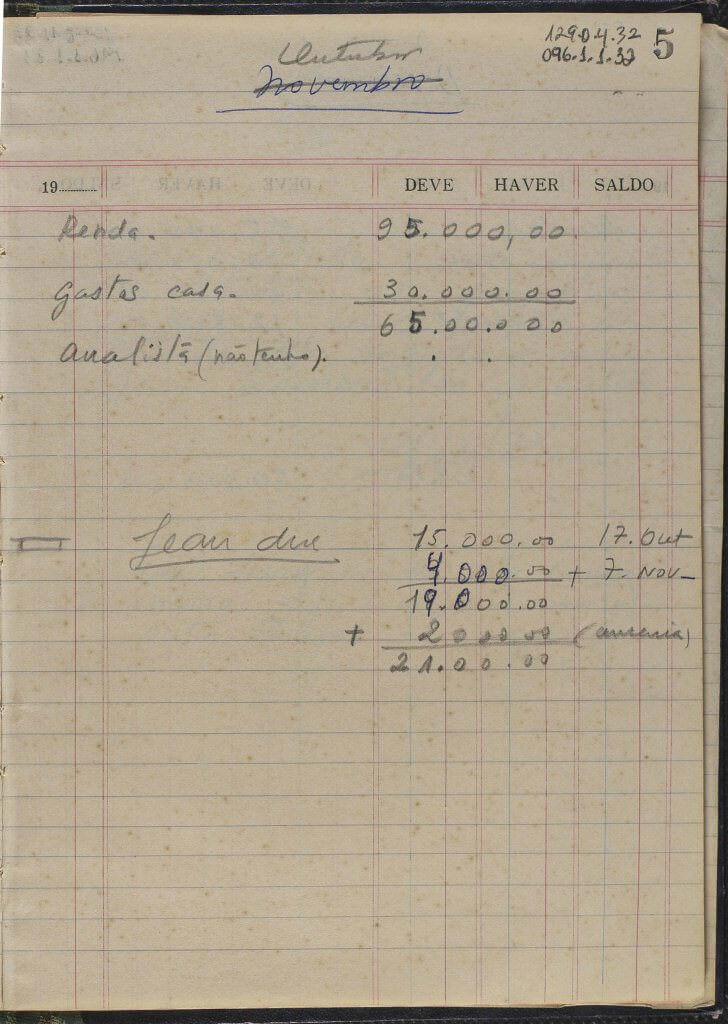 Outubro
Novembro
1290.4.32
096.1.1.32
5
19 DEVE HAVER SALDO
Renda. 95.000,00
Gastos casa. 30.000.00
65.00.000
Analista (não tenho).
Jean due 15.000.00 17. Out
4.000.00 + 7. Nov
19.000.00
+ 2000.00
21.00.00